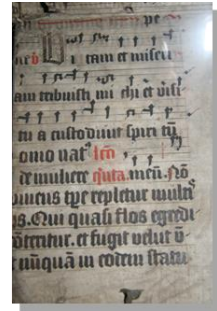 pe
V i tam et miseri
am tribuisti mi chi et visi
tu a custodiuit spiri tū
omo nat⁹ lcō
de muliere qͥnta. meū.
viuens tp̄e repletur multi
s. Qui quasi flos egredi
ōteritur. et fugit velut v̄
nūquā in eodem statu